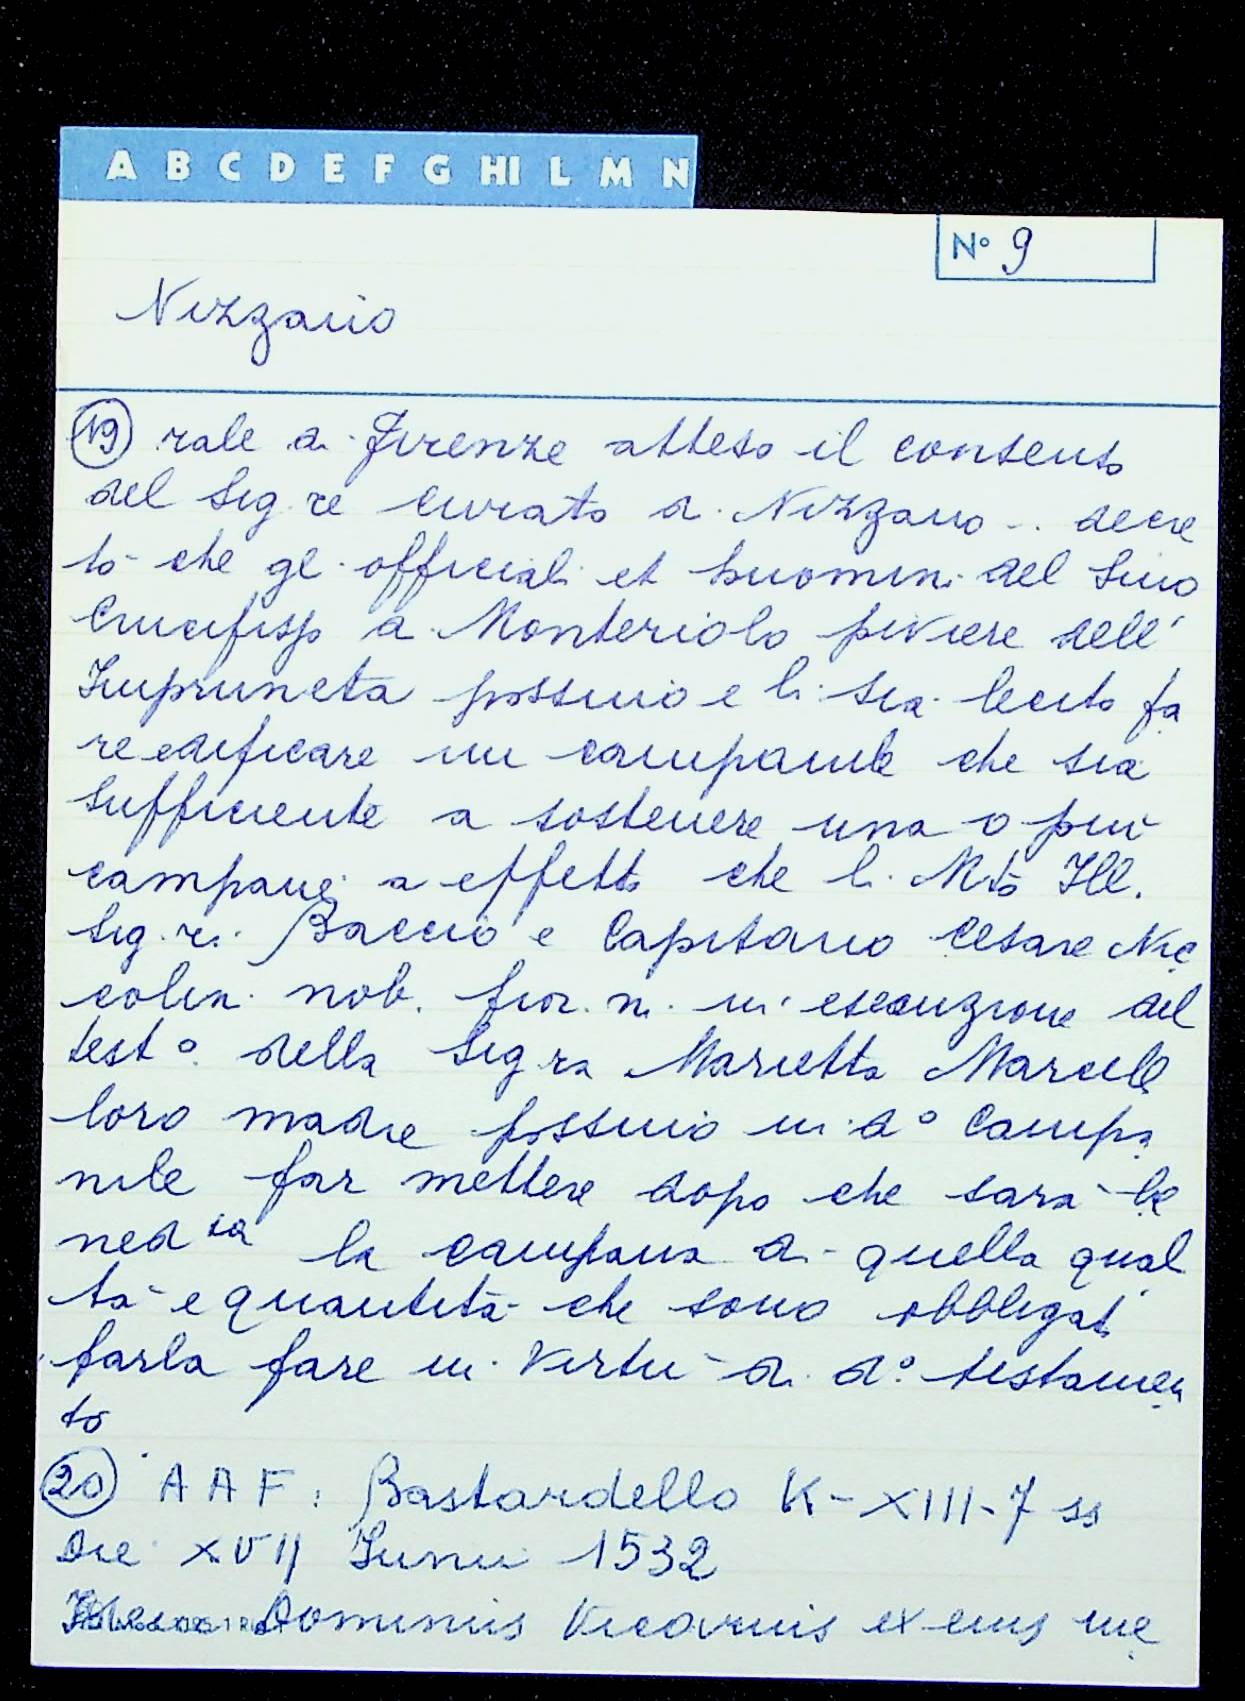 A B C D E F G HI L M N
N° 9
Nizzano
(19) rale di Firenze atteso il consenso
del Sig.re Curato di Nizzano .. decre
tò che gl'officiali et huomini del Smo
Crucifisso di Monteriolo piviere dell'
Impruneta possino e li sia lecito fa
re edificare un campanile che sia
sufficiente a sostenere una o più
campane a effetto che li Mto Ill.
Sig.ri Baccio e Capitano Cesare Nic
colini nob. fior.ni in esecuzione del
test° della Sig.ra Marietta Marcelli
loro madre possino in d° Campa
nile far mettere dopo che sarà be
ned.ta la campana di quella quali
tà e quantità che sono obbligati
farla fare in virtù di d° testamen
to
(20) AAF: Bastardello K-XIII-7 ss
Die XVII Junii 1532
Dominus Vicarius ex eius me